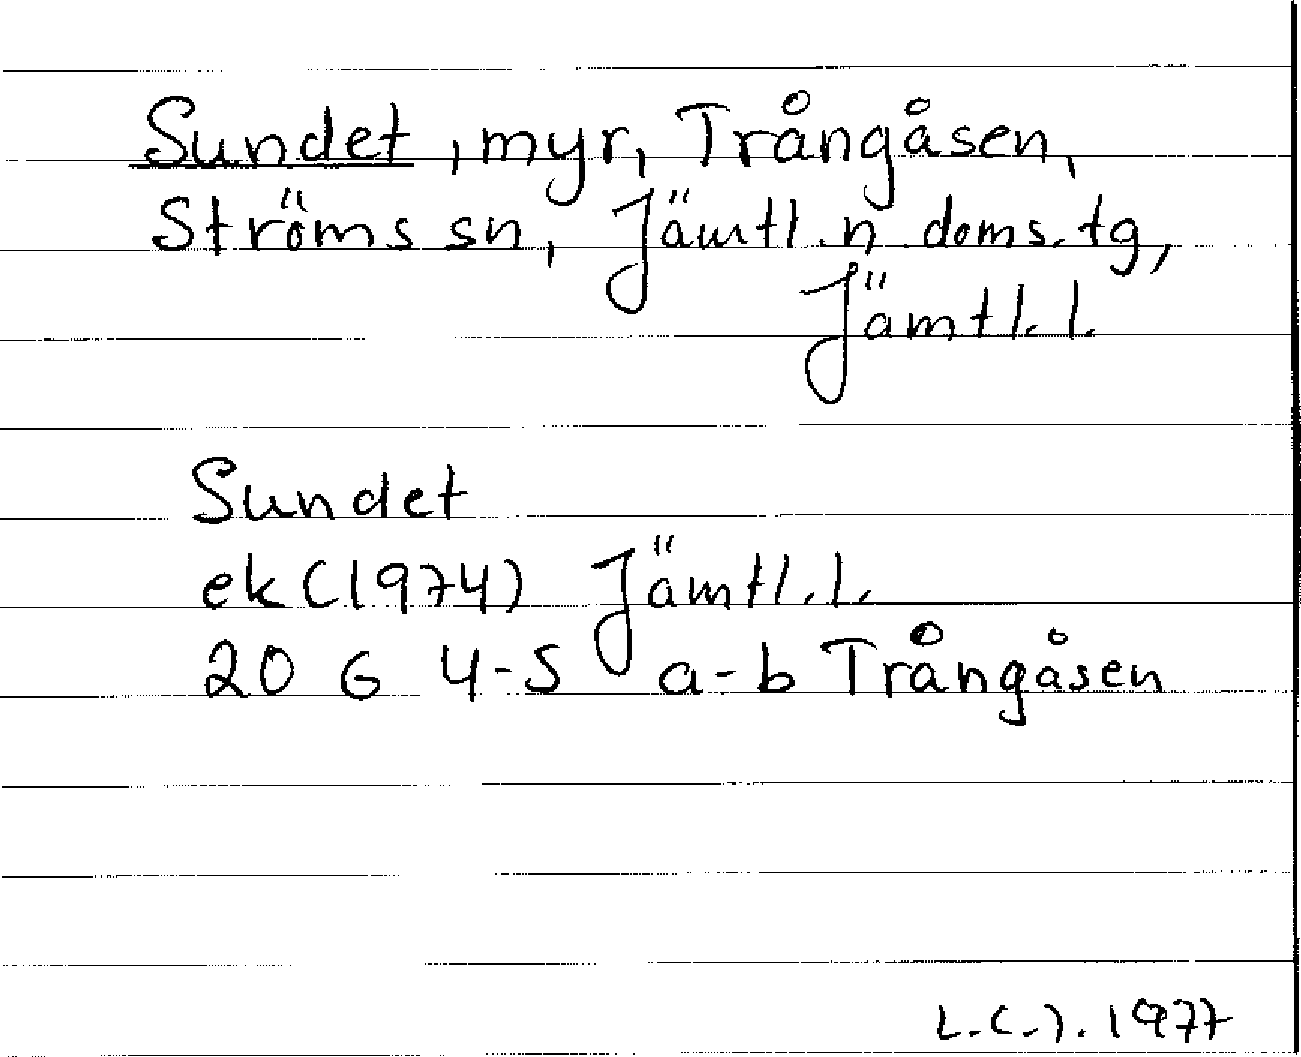 Sundet, myr, Trångåsen,
Ströms sn, Jämtl. n doms. tg,
Jämtl. l.
Sundet
ek (1974) Jämtl. l.
20 G 4-5 a-b Trångåsen
L.C.J. 1977